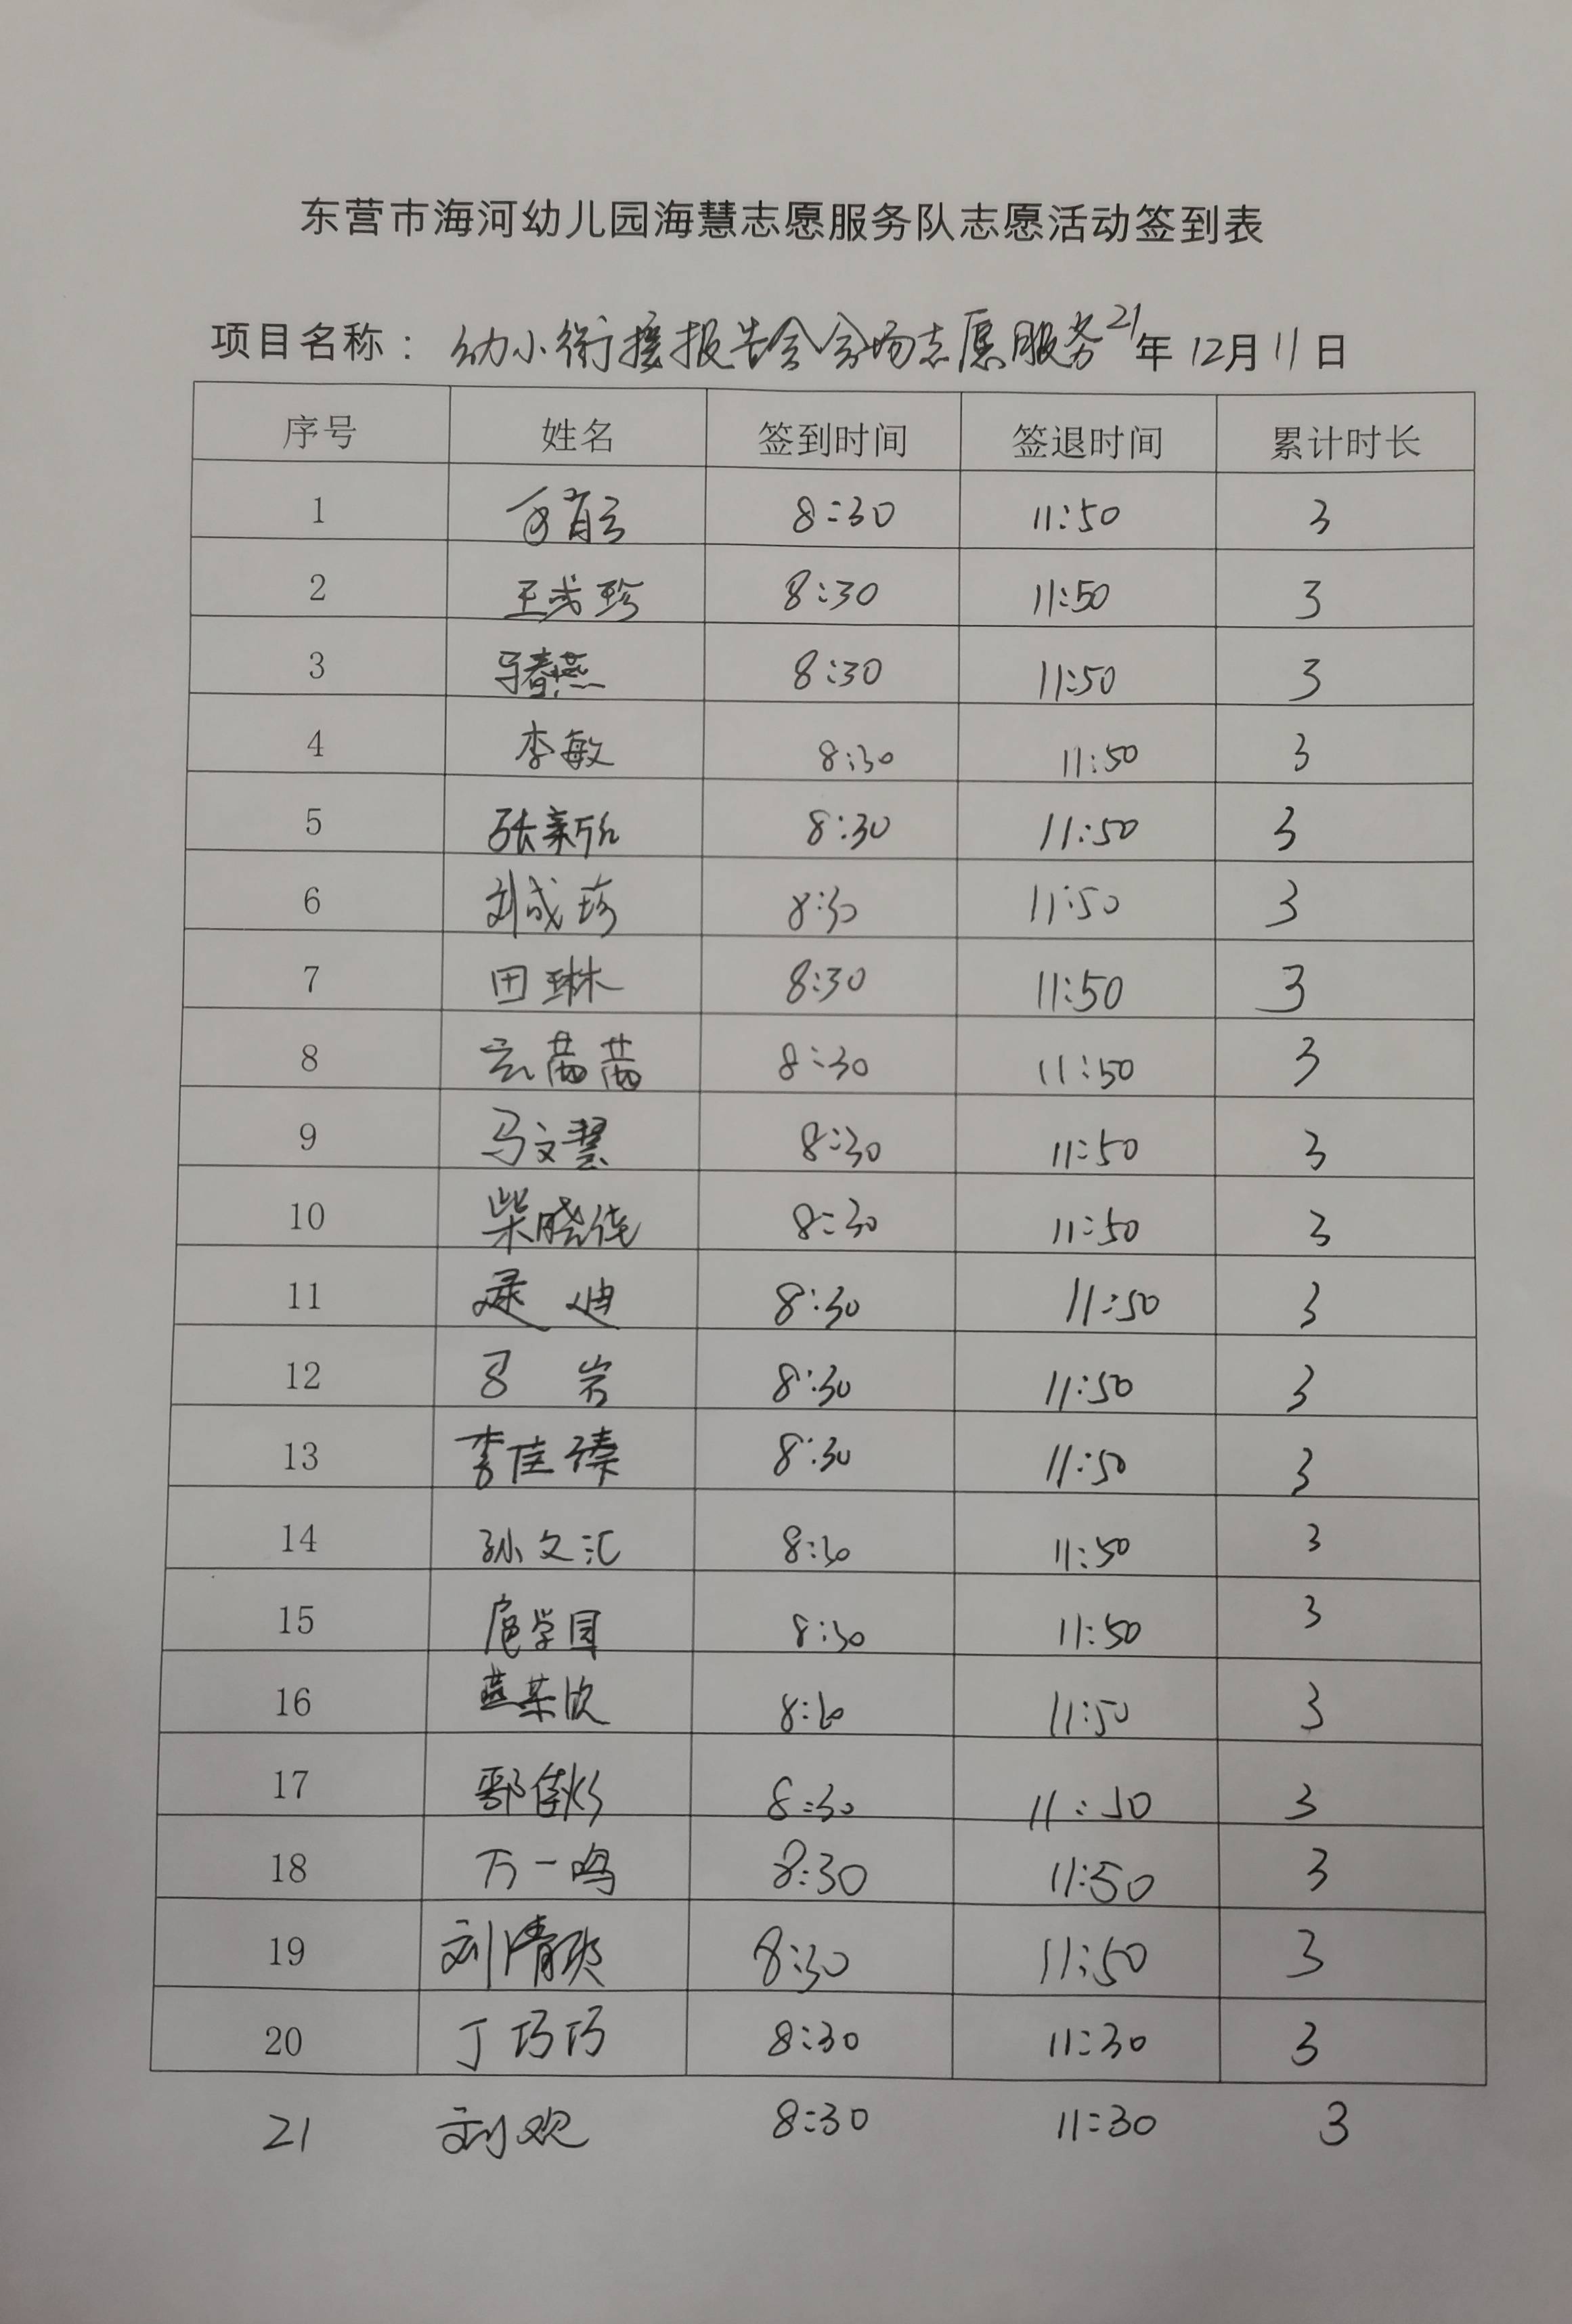 东营市海河幼儿园海慧志愿服务队志愿活动签到表
项目名称：幼小衔接报告会会场志愿服务21年12月11日
序号 姓名 签到时间 签退时间 累计时长
1 8:30 11:50 3
2 王成珍 8:30 11:50 3
3 马春燕 8:30 11:50 3
4 李敏 8:30 11:50 3
5 张新 8:30 11:50 3
6 刘成珍 8:30 11:50 3
7 田琳 8:30 11:50 3
8 茜茜 8:30 11:50 3
9 马文慧 8:30 11:50 3
10 柴晓佳 8:30 11:50 3
11 迪 8:30 11:50 3
12 岩 8:30 11:50 3
13 李佳臻 8:30 11:50 3
14 孙文汇 8:30 11:50 3
15 扈学园 8:30 11:50 3
16 8:30 11:50 3
17 鄢 8:30 11:50 3
18 万一鸣 8:30 11:50 3
19 刘清 8:30 11:50 3
20 丁巧巧 8:30 11:30 3
21 刘欢 8:30 11:30 3